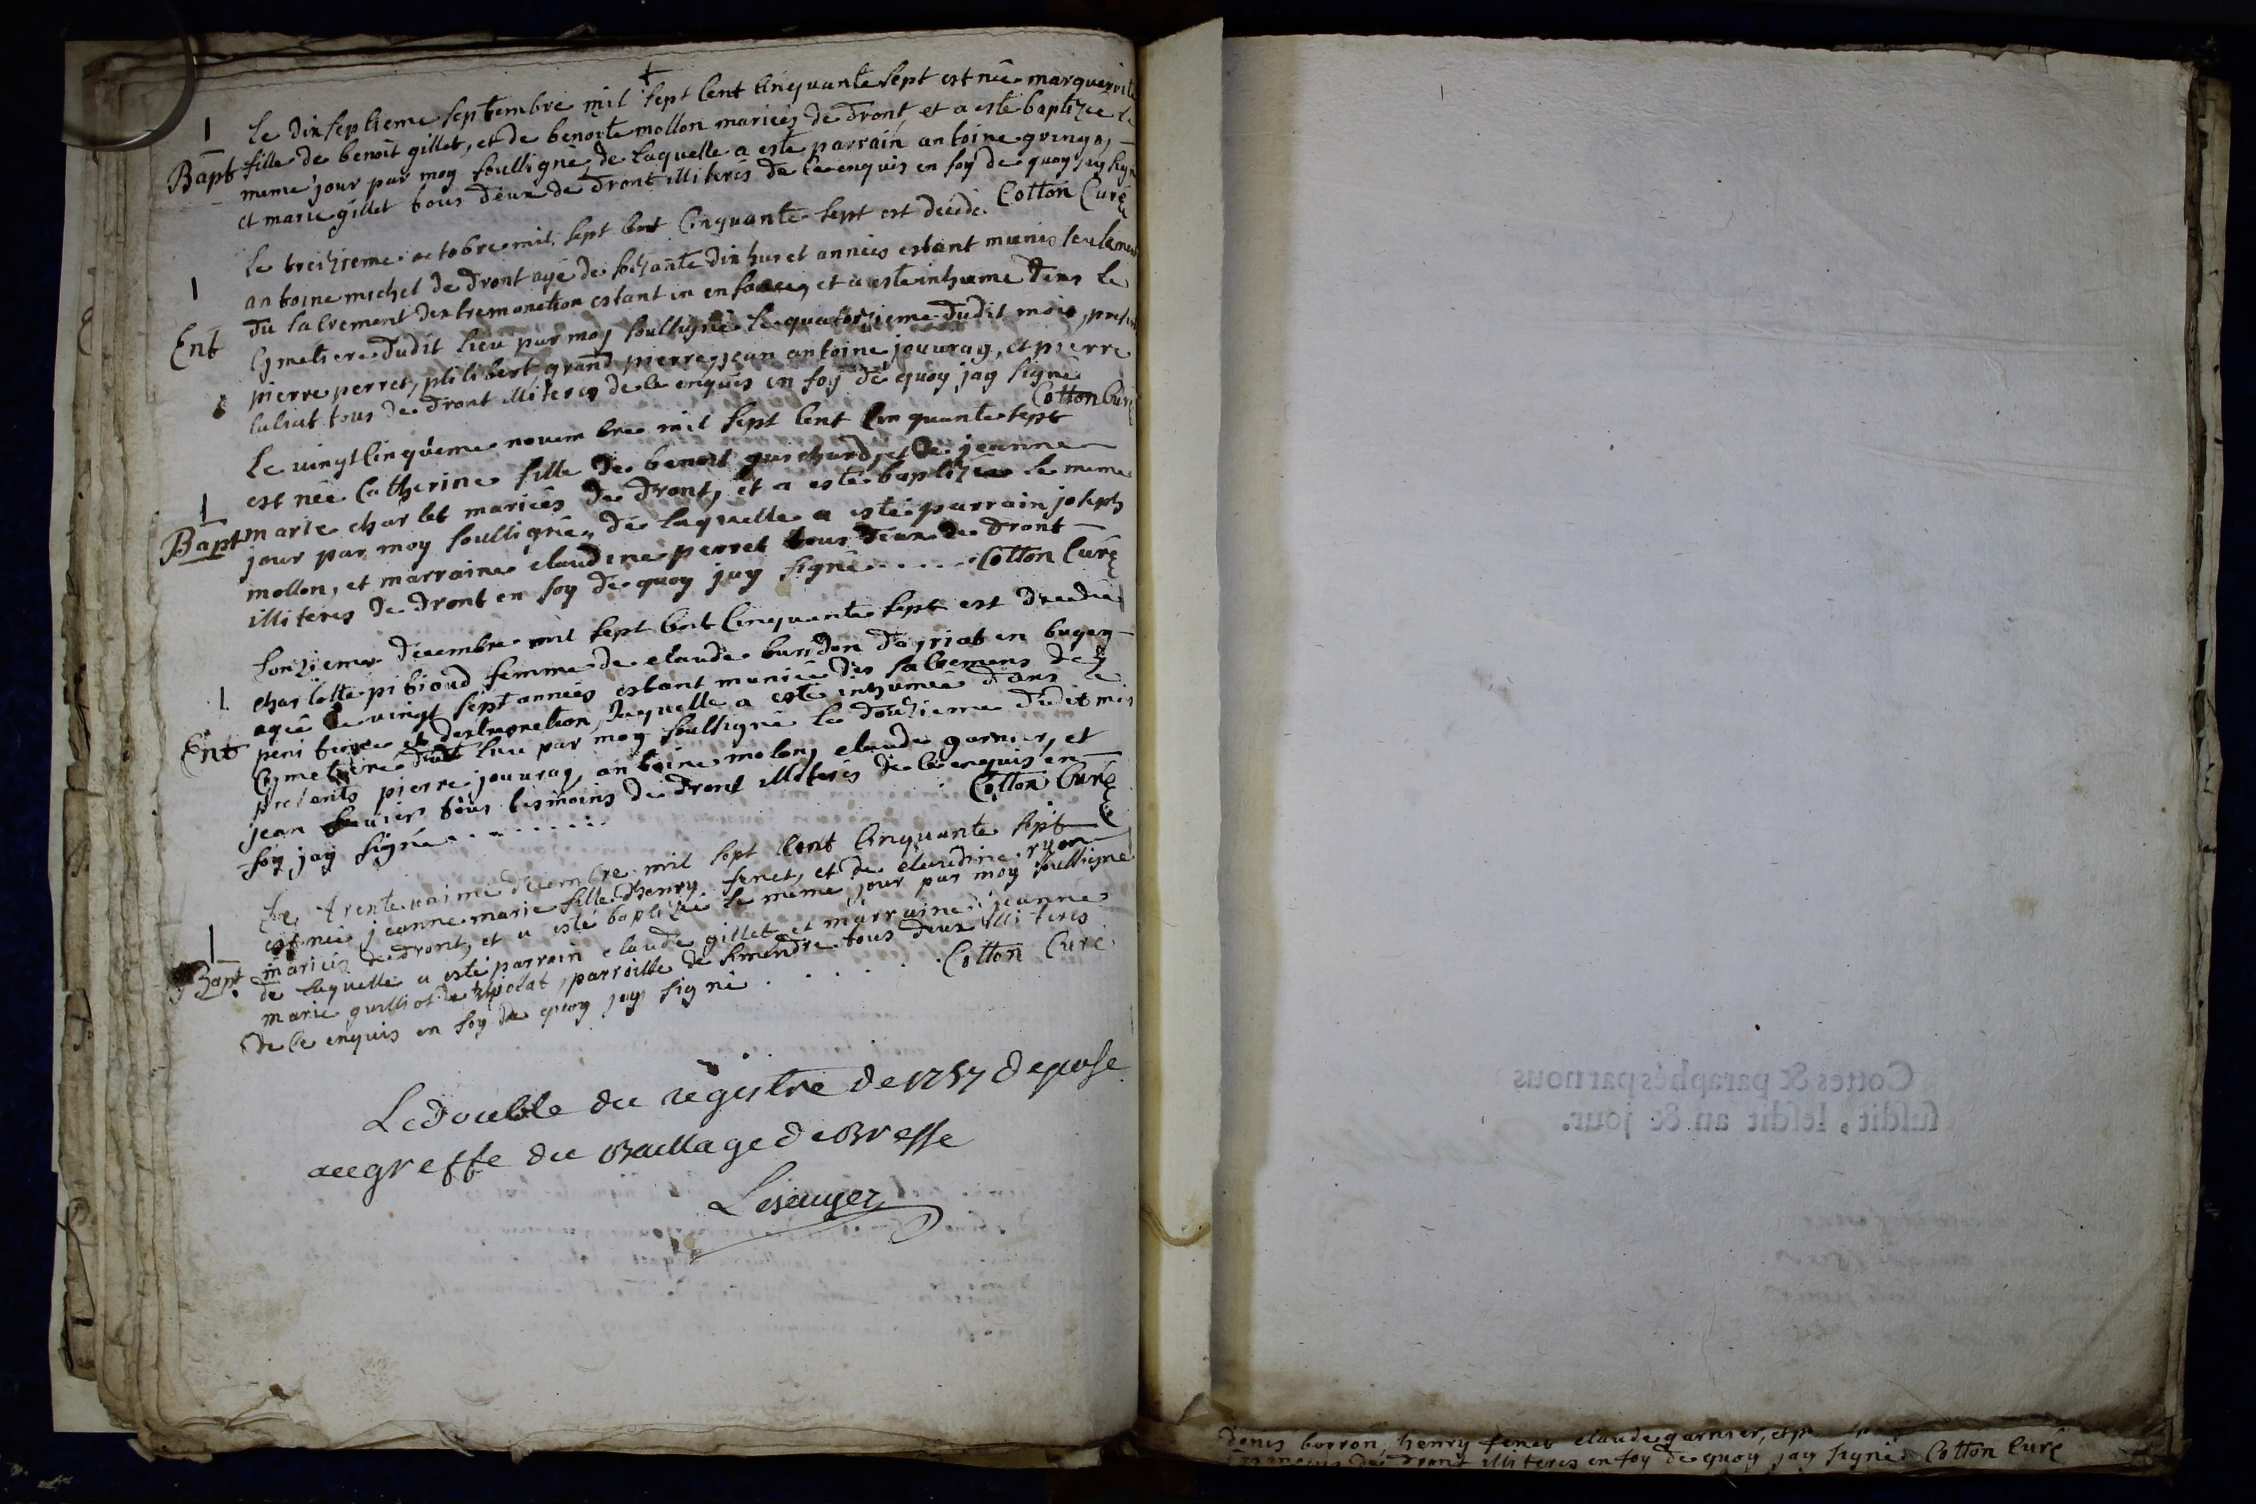 1 Le dixseptieme septembre mil sept Cent Cinquante sept est née marguerite
Bapt fille de benoit gillet, et de benoite mollon mariés de Dront, et a esté baptizee le
meme jour par moy soussigné, de laquelle a esté parrain antoine gringa,
et marie gillet tous deux de Dront illiterés de Ce enquis en foy de quoy jay signé
Cotton Curé
1 Le treizieme octobre mil sept Cent Cinquante sept est decedé
antoine michel de Dront agé de soizante dix huret années estant munis seulement
Du sacrement dextremonction estant en enfance, et a esté inhumé dans le
Ent Cymetiere dudit lieu par moy soussigné le quatorzieme dudit mois, presents
pierre perret, philibert grand pierre, jean antoine jouvray, et pierre
tous de Dront illiterés de Ce enquis en foy de quoy jay signé
Cotton Curé
Le vingt Cinquieme novembre mil sept Cent Cinquante sept
1 est née Catherine fille de benoit guichard, et de jeanne
Bapt marie charlet mariés de Dront, et a esté baptizée le meme
jour par moy soussigné, de laquelle a esté parrain joseph
mollon, et marraine claudine perret tous deux de Dront
illiterés de Dront en foy de quoy jay signé . . . . . Cotton Curé
Lonzieme decembre mil sept Cent Cinquante sept est decedée
1. charlotte pitioud femme de claude buridon dayriat en bugey
agée de vingt sept années estant munie des sacremens de
Ent penitence et dextremonction, laquelle a esté inhumée dans le
Cymetiere dudit lieu par moy soussigné le douzieme dudit mois
presents pierre jouvray, antoine molon, claude garnier, et
jean tous tesmoins de Dront illiterés de Ce enquis en
foy jay signé . . . . . . . . Cotton Curé
Le trente unime decembre mil sept Cent Cinquante sept
1 est née jeanne marie fille dhenry fenet, et de claudine ryon
Bapt. mariés de Dront, et a esté baptizée le meme jour par moy soussigné
de laquelle a esté parrain claude gillet et marraine jeanne
marie guilliot de , parroisse de simendre tous deux illiterés
de Ce enquis en foy de quoy jay signé . . . . . . Cotton Curé
Le double du registre de 1757 deposé
au greffe du Baillage de Bresse
Cottes & paraphés par nous
susdit, lesdit an & jour.
denis borron, henry fenet claude garnier, et
de Dront illiterés en foy de quoy jay signé Cotton Curé